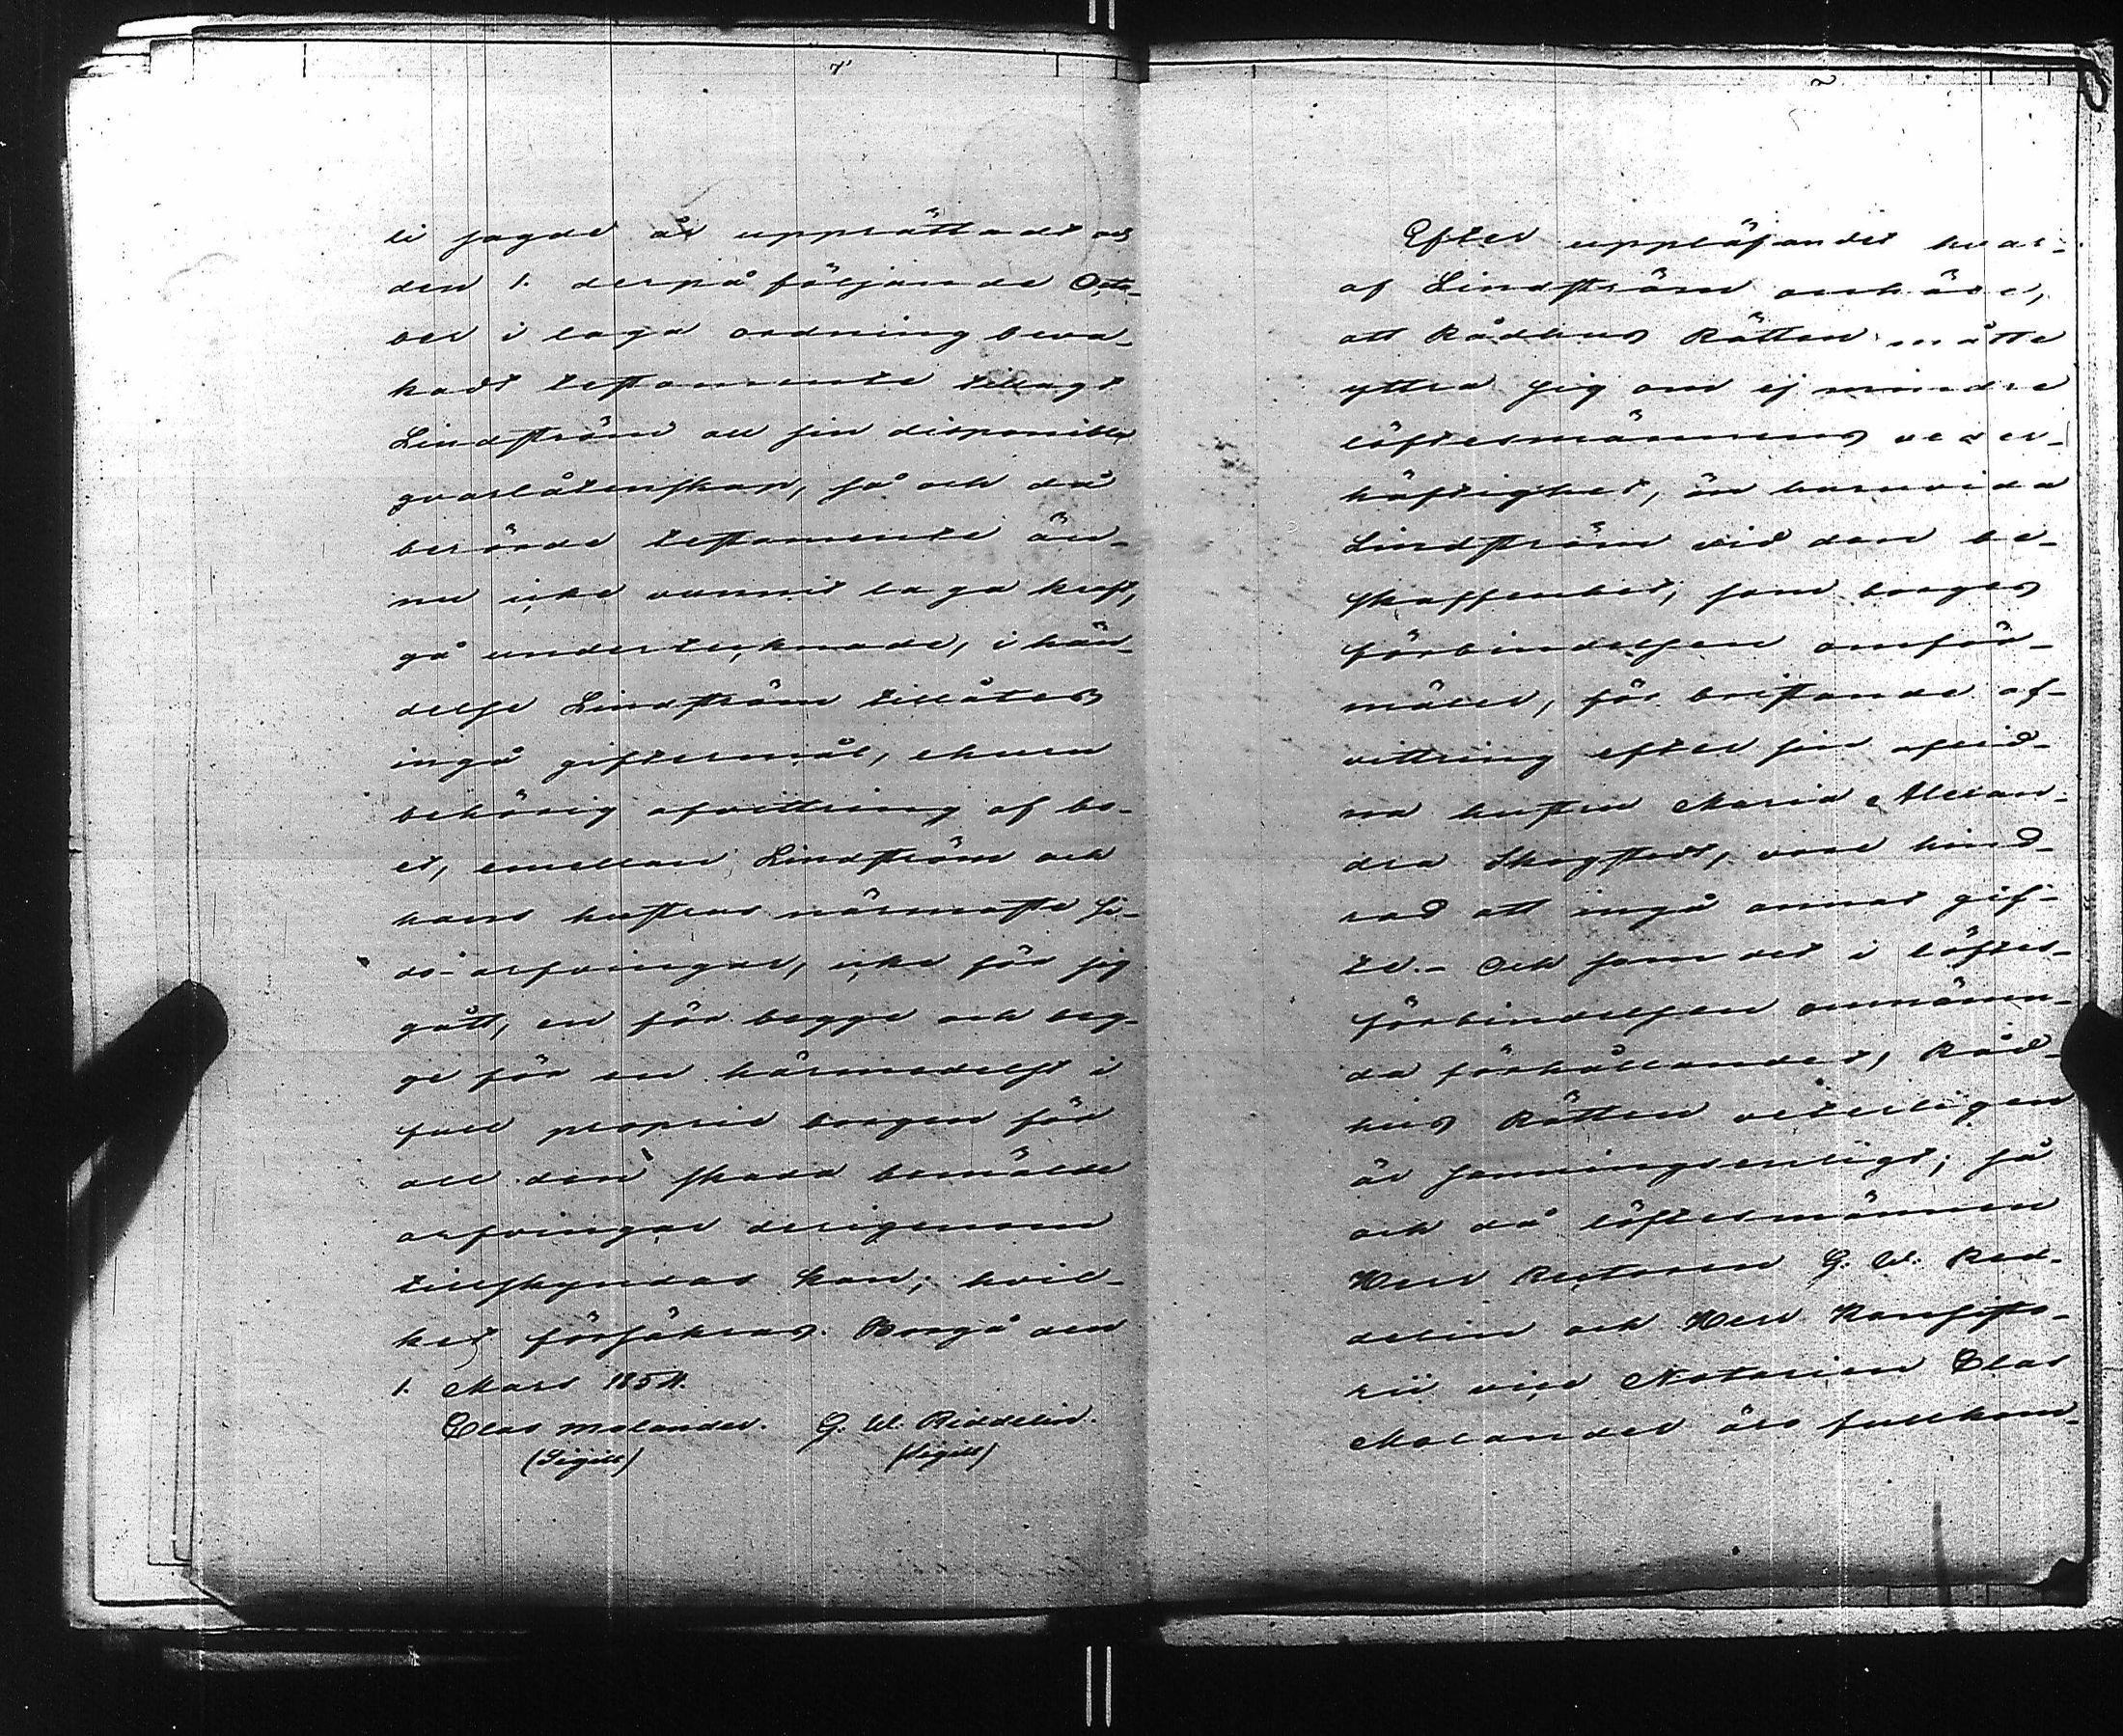 li sagde år upprättadt och
den 1. derpå följande Octo-
ber i laga ordning beva-
kadt testamente tillagt
Lindström all sin disponibla
qvarlåtenskap, så och då
berörde testamente än-
nu icke vunnit laga kraft,
gå undertecknade, i hän-
delse Lindström tillåtes
ingå giftermål, ehuru
behörig afvittring af bo-
et, emellan Lindström och
hans hustrus närmaste si-
do-arfvingar, icke för sig
gått, en för begge och beg-
ge för en härmedelst i
full proprie borgen för
all den skada bemälde
arfvingar derigenom
tillskyndas kan; hvil-
ket försäkras. Borgå den
1. Mars 1854.
Clas Molander. G. W. Riddelin.
(Sigill) (Sigill)
Efter uppläsandet hvar-
af Lindström anhöll,
att Rådhus Rätten måtte
yttra sig om ej mindre
löftesmännens veder-
häftighet, än huruvida
Lindström vid den be-
skaffenhet, som borges
förbindelsen omför-
mäler, för bristande af-
vittring efter sin aflid-
na hustru Maria Alexan-
dra Skogstedt, vore hind-
rad att ingå annat gif-
te. - Och som det i löftes-
förbindelsen omnämn-
da förhållandet, Råd-
hus Rätten veterligen
är sanningsenligt; så
och då löftesmännen
Herr Rectoren G. W. Rid-
delin och Herr Konsisto-
rii vice Notarien Clas
Molander äro fullkom-